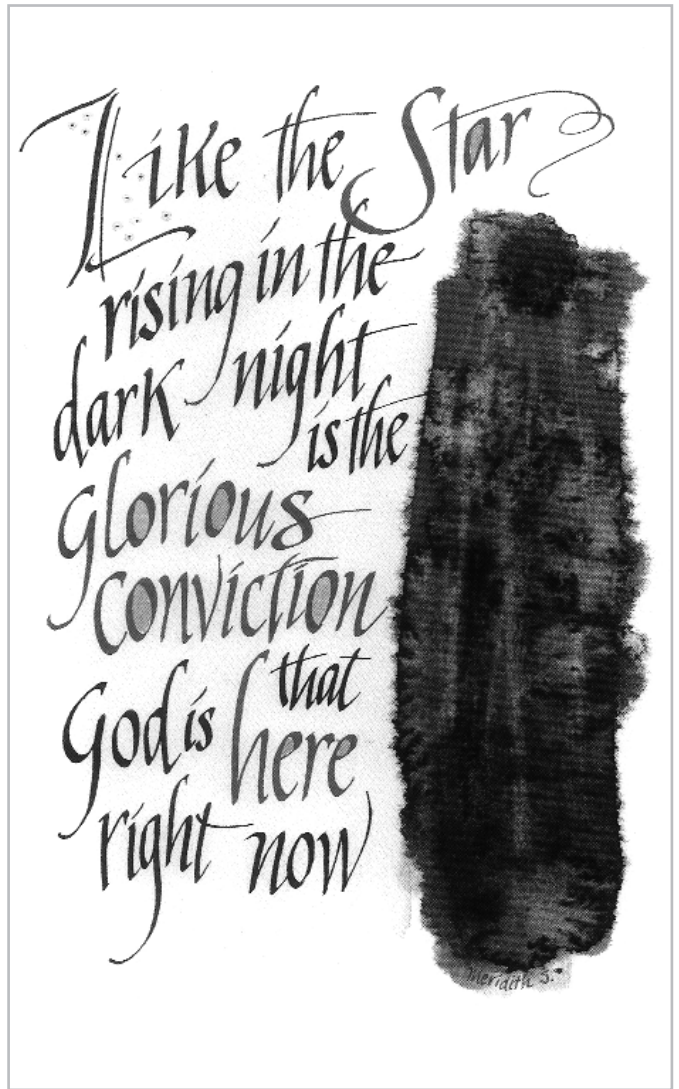 Like the Star
rising in the
dark night
is the
Glorious
Conviction
that
God is here
right now
Meridith S.